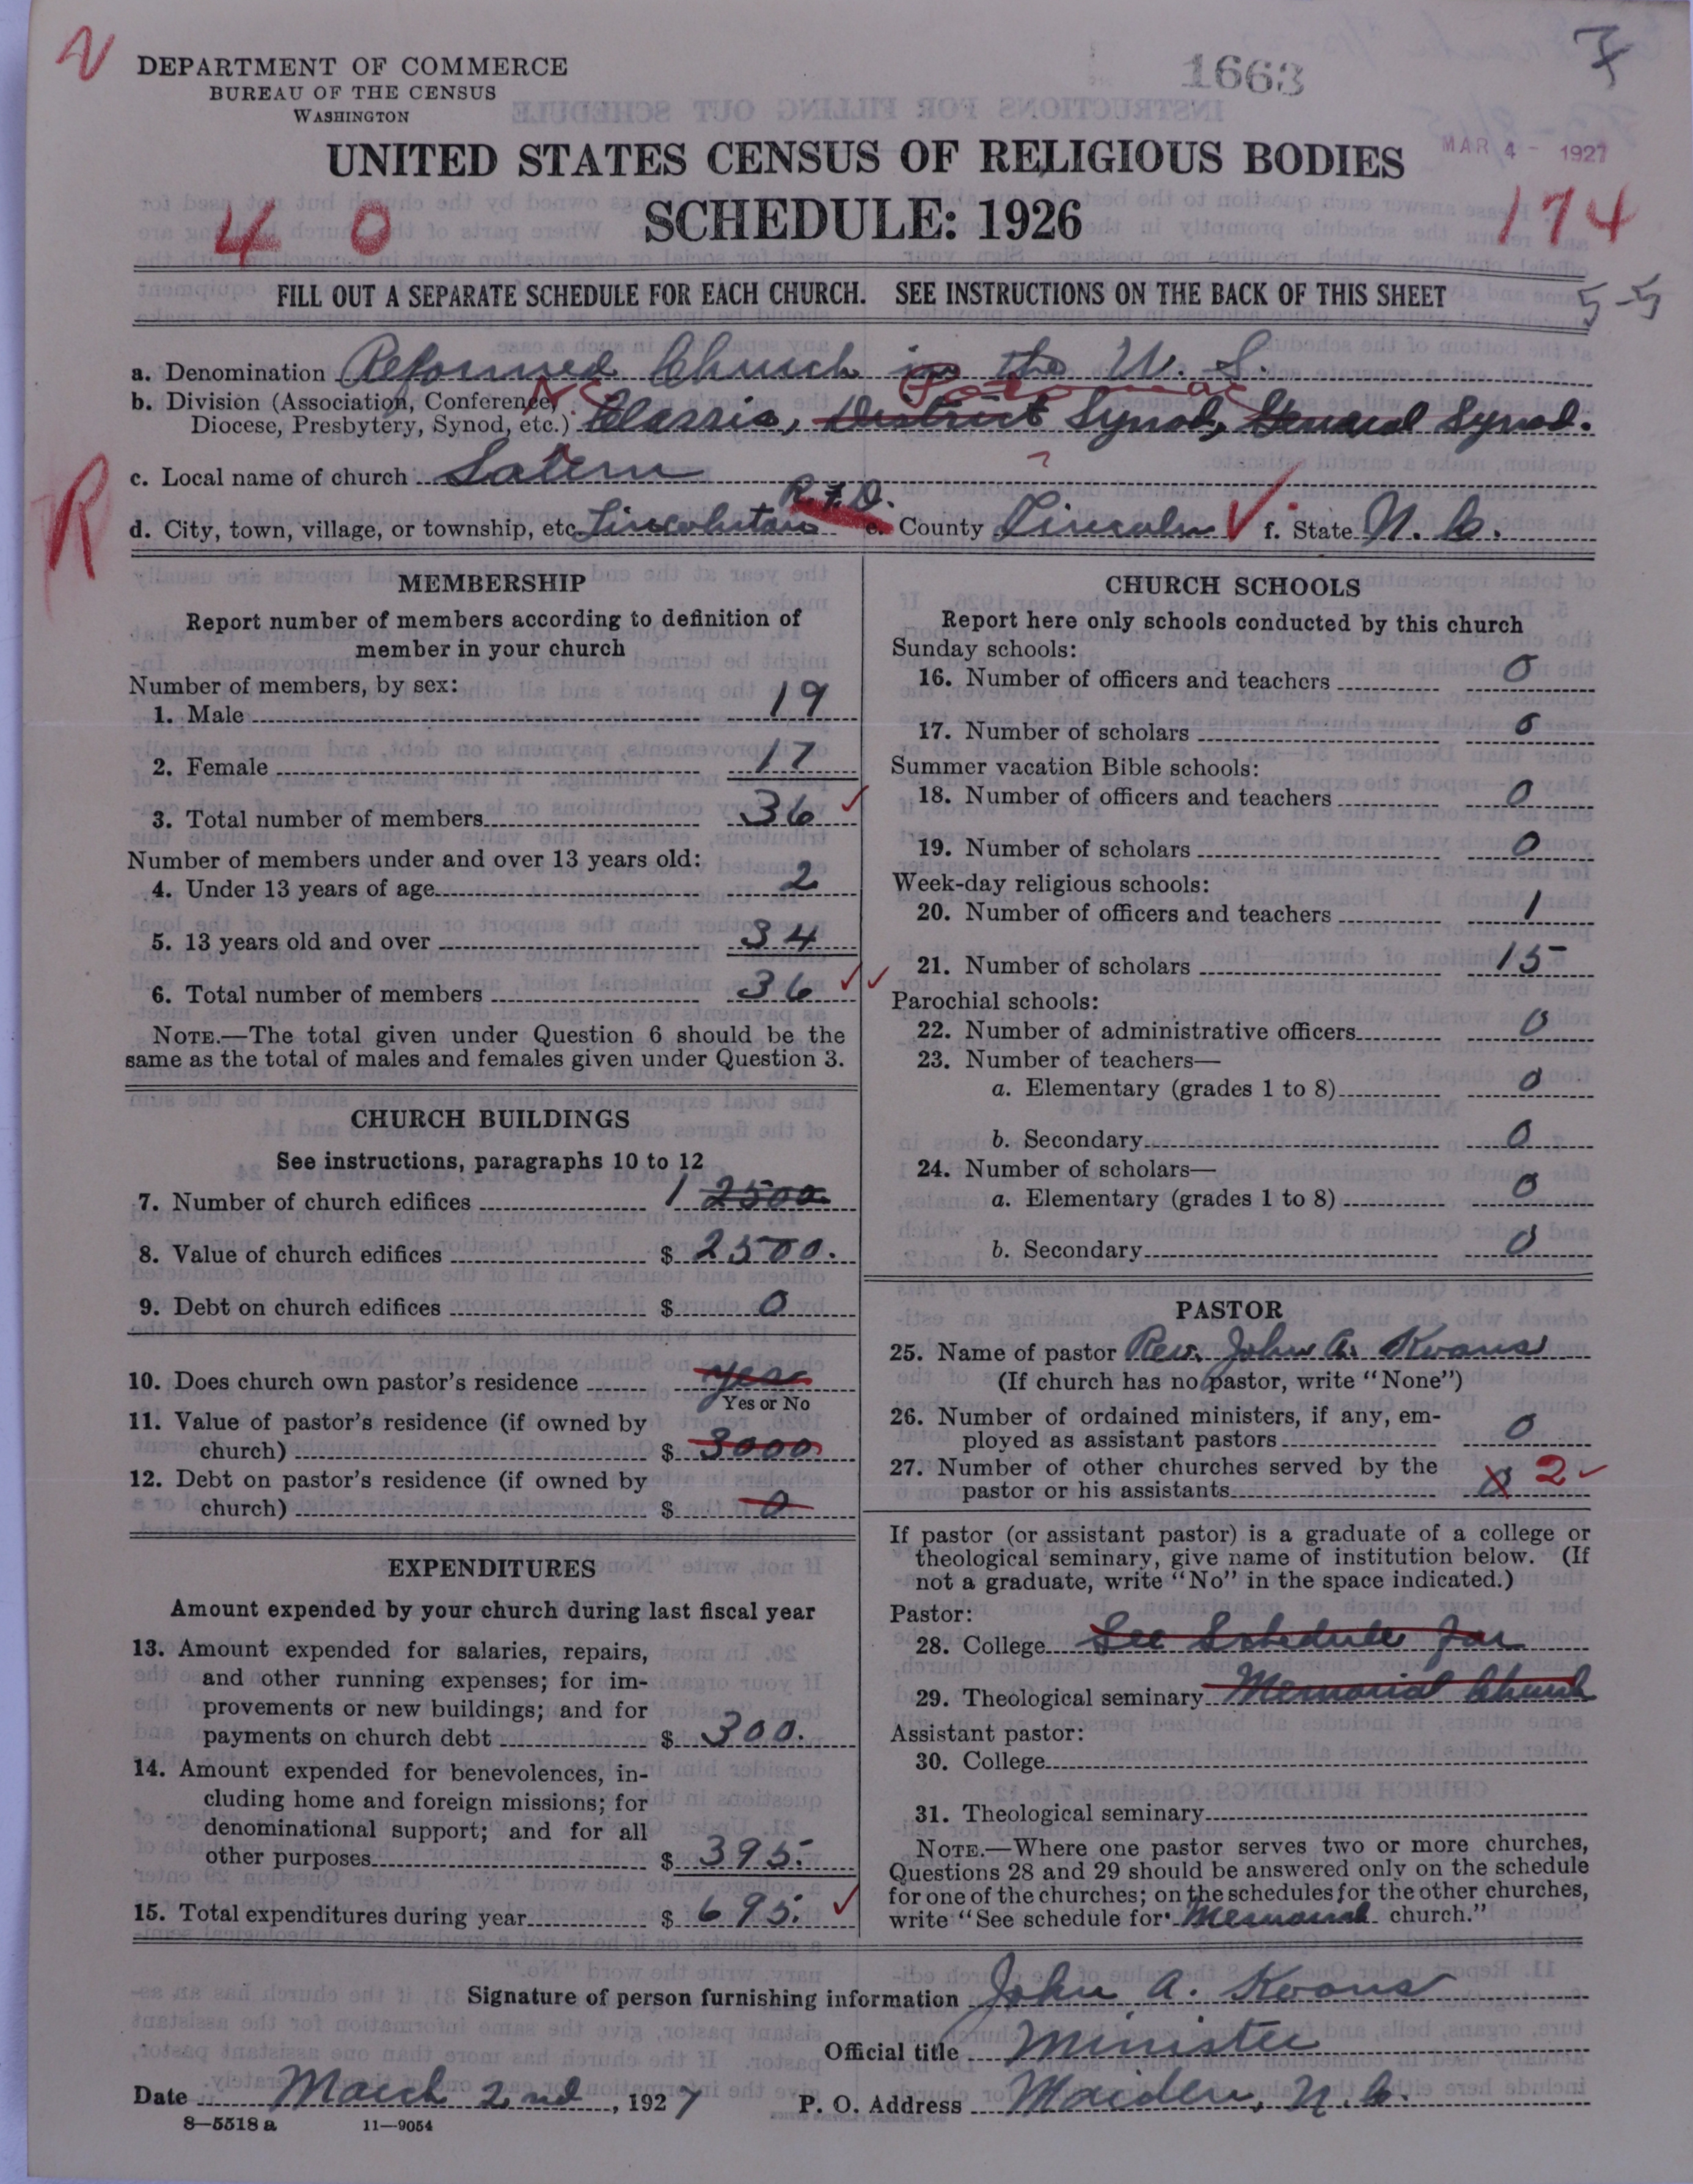 N
DEPARTMENT OF COMMERCE
BUREAU OF THE CENSUS
WASHINGTON
1663
7
UNITED STATES CENSUS OF RELIGIOUS BODIES
MAR 4 - 1927
SCHEDULE: 1926
4 0
174
FILL OUT A SEPARATE SCHEDULE FOR EACH CHURCH. SEE INSTRUCTIONS ON THE BACK OF THIS SHEET
5-5
a. Denomination Reformed Church in the U. S.
b. Division (Association, Conference, N C Potomac
Diocese, Presbytery, Synod, etc.) Classis, District Synod, General Synod.
R
c. Local name of church Salem
R.F.D.
d. City, town, village, or township, etc. Lincolnton e. County Lincoln f. State N. C.
MEMBERSHIP
Report number of members according to definition of
member in your church
Number of members, by sex:
1. Male 19
2. Female 17
3. Total number of members 36
Number of members under and over 13 years old:
4. Under 13 years of age 2
5. 13 years old and over 34
6. Total number of members 36
NOTE.—The total given under Question 6 should be the
same as the total of males and females given under Question 3.
CHURCH BUILDINGS
See instructions, paragraphs 10 to 12
7. Number of church edifices 1 2500.
8. Value of church edifices $ 2500.
9. Debt on church edifices $ 0
10. Does church own pastor's residence yes
Yes or No
11. Value of pastor's residence (if owned by
church) $ 3000
12. Debt on pastor's residence (if owned by
church) $ 0
EXPENDITURES
Amount expended by your church during last fiscal year
13. Amount expended for salaries, repairs,
and other running expenses; for im-
provements or new buildings; and for
payments on church debt $ 300.
14. Amount expended for benevolences, in-
cluding home and foreign missions; for
denominational support; and for all
other purposes $ 395.
15. Total expenditures during year $ 695.
CHURCH SCHOOLS
Report here only schools conducted by this church
Sunday schools:
16. Number of officers and teachers 0
17. Number of scholars 0
Summer vacation Bible schools:
18. Number of officers and teachers 0
19. Number of scholars 0
Week-day religious schools:
20. Number of officers and teachers 1
21. Number of scholars 15
Parochial schools:
22. Number of administrative officers 0
23. Number of teachers—
a. Elementary (grades 1 to 8) 0
b. Secondary 0
24. Number of scholars—
a. Elementary (grades 1 to 8) 0
b. Secondary 0
PASTOR
25. Name of pastor Rev. John A. Koons
(If church has no pastor, write "None")
26. Number of ordained ministers, if any, em-
ployed as assistant pastors 0
27. Number of other churches served by the
pastor or his assistants 2
If pastor (or assistant pastor) is a graduate of a college or
theological seminary, give name of institution below. (If
not a graduate, write "No" in the space indicated.)
Pastor:
28. College See Schedule for
29. Theological seminary Memorial Church
Assistant pastor:
30. College
31. Theological seminary
NOTE.—Where one pastor serves two or more churches,
Questions 28 and 29 should be answered only on the schedule
for one of the churches; on the schedules for the other churches,
write "See schedule for Memorial church."
Signature of person furnishing information John A. Koons
Official title Minister
Date March 2nd, 1927 P. O. Address Maiden, N. C.
8—5518 a 11—9054